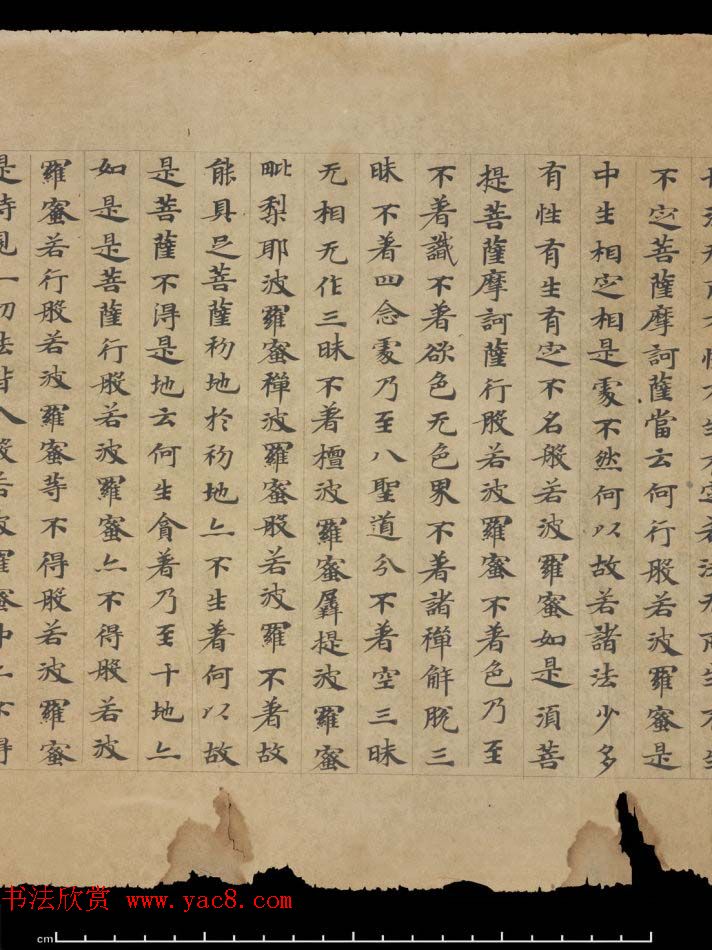 不㝎菩薩摩訶薩當云何行般若波羅蜜是
中生相㝎相是處不然何以故若諸法少多
有性有生有㝎不名般若波羅蜜如是須菩
提菩薩摩訶薩行般若波羅蜜不著色乃至
不著識不著欲色无色界不著諸禪解脫三
昧不著四念處乃至八聖道分不著空三昧
无相无作三昧不著檀波羅蜜羼提波羅蜜
毗梨耶波羅蜜禪波羅蜜般若波羅不著故
能具足菩薩初地於初地亦不生著何以故
是菩薩不得是地云何生貪著乃至十地亦
如是是菩薩行般若波羅蜜亦不得般若波
羅蜜若行般若波羅蜜等不得般若波羅蜜
是時見一切法皆入般若波羅蜜中亦不得
书法欣赏 www.yac8.com
cm